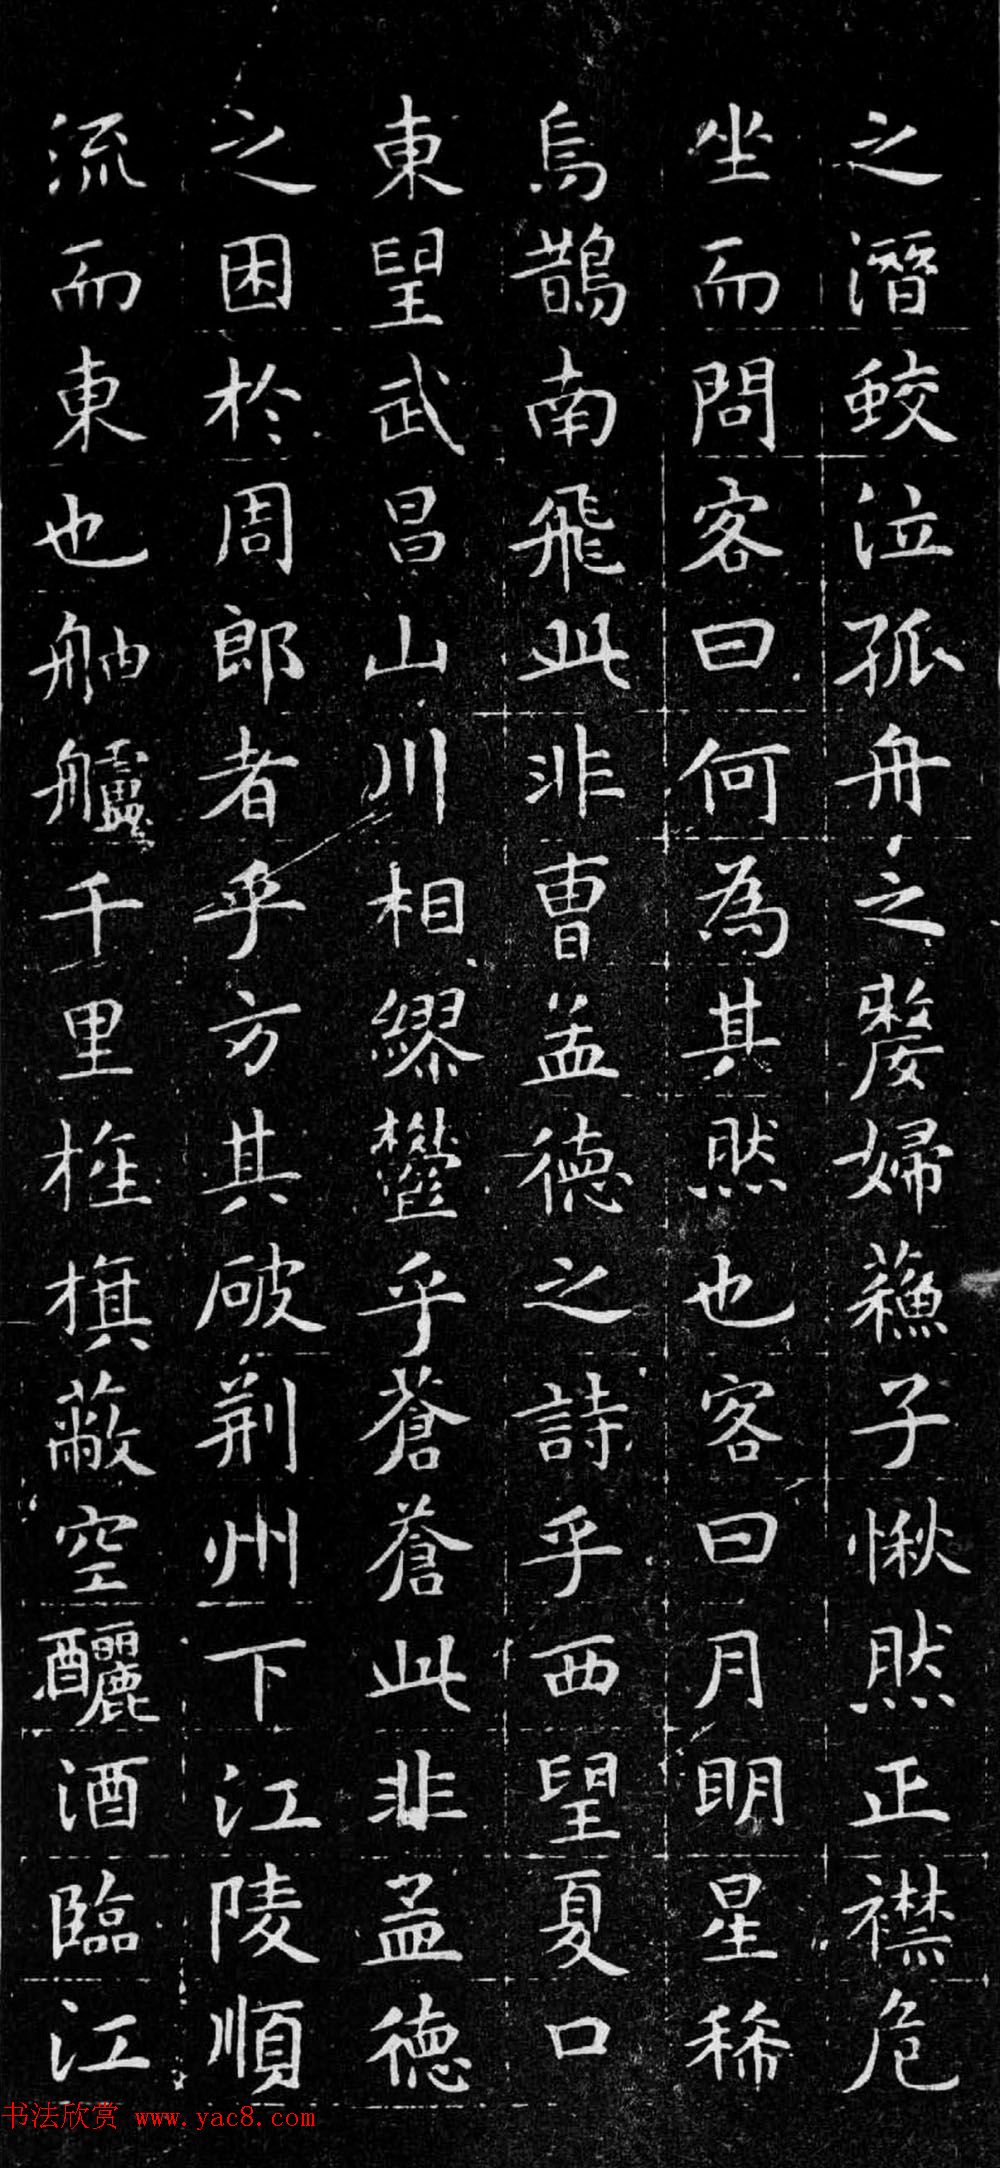 之潛鮫泣孤舟之嫠婦蘓子愀然正襟危
坐而問客曰何為其然也客曰月明星稀
烏鵲南飛此非曹孟德之詩乎西望夏口
東望武昌山川相繆欝乎蒼蒼此非孟德
之困於周郎者乎方其破荆州下江陵順
流而東也舳艫千里旌旗蔽空釃酒臨江
书法欣赏 www.yac8.com